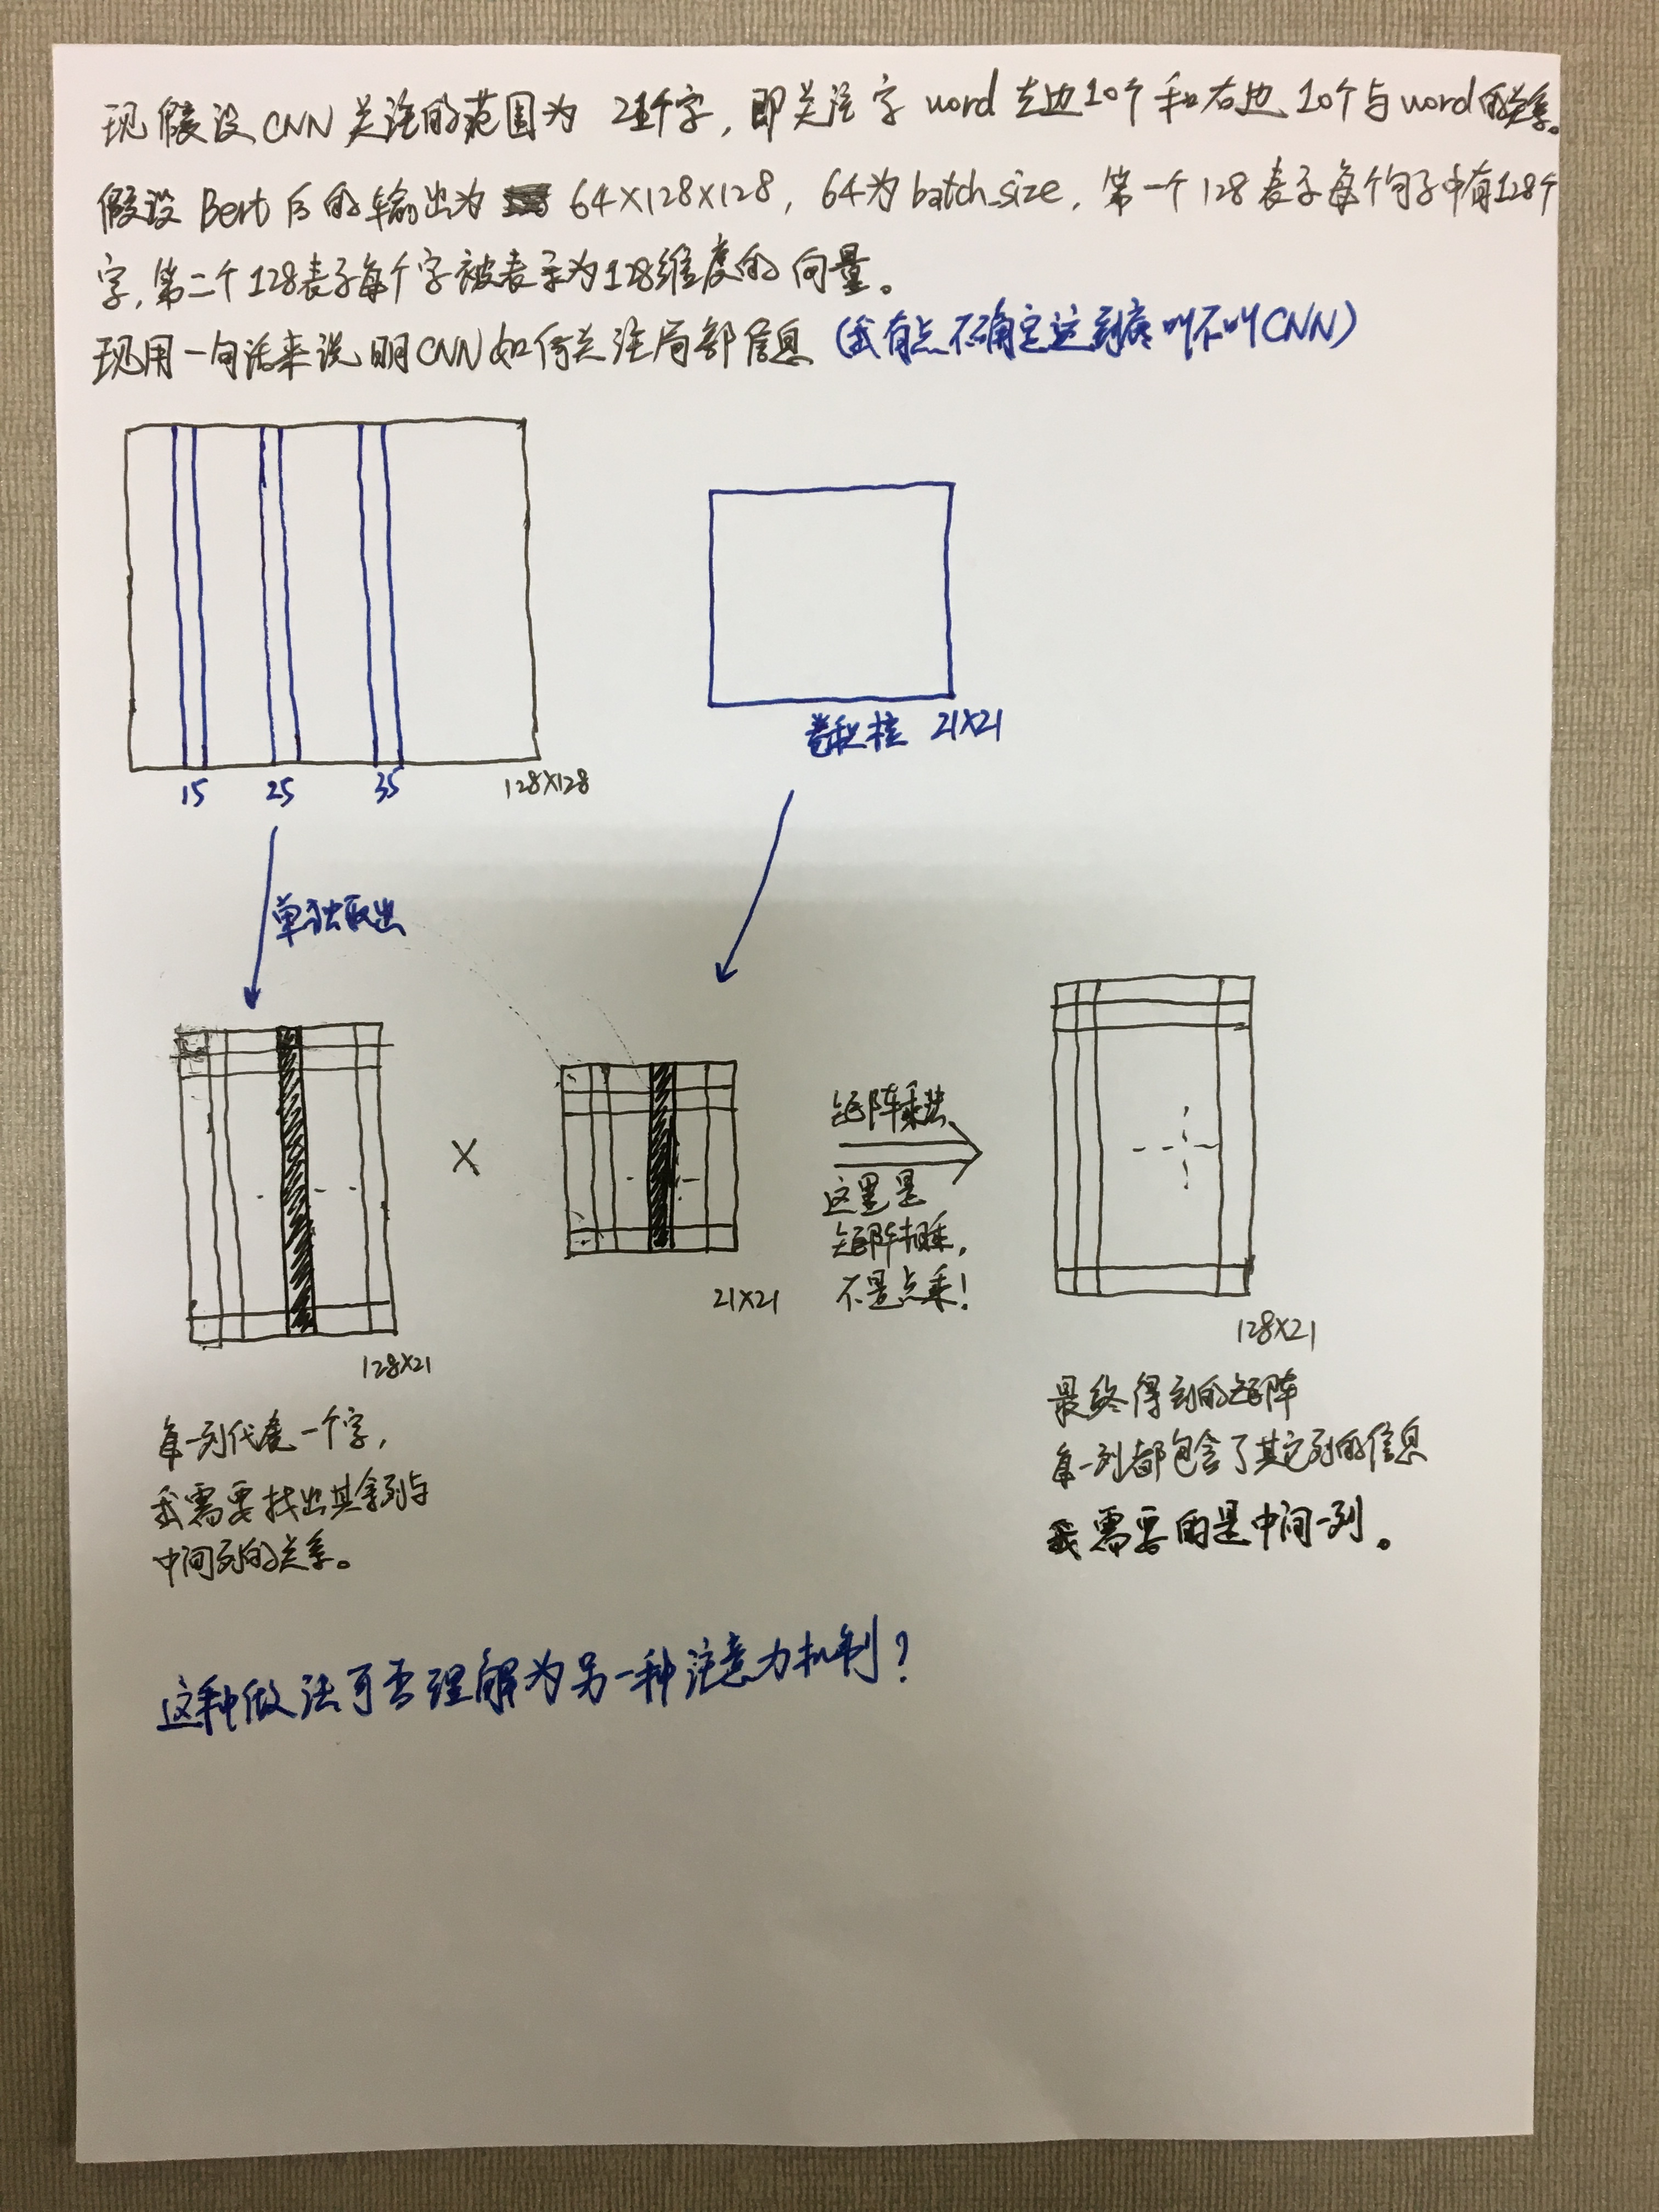 现假设CNN关注的范围为 21个字，即关注字 word 左边10个和右边10个与word的关系。
假设 Bert 后的输出为 64×128×128，64为batch_size，第一个128表示每个句子中有128个
字，第二个128表示每个字被表示为128维度的向量。
现用一句话来说明CNN如何关注局部信息（我有点不确定这到底叫不叫CNN）
卷积核 21×21
15 25 35 128×128
单独取出
矩阵乘法
×
这里是
矩阵相乘，
不是点乘！
21×21
128×21
128×21
每一列代表一个字，
我需要找出其余列与
中间列的关系。
最终得到的矩阵
每一列都包含了其它列的信息
我需要的是中间一列。
这种做法可否理解为另一种注意力机制？